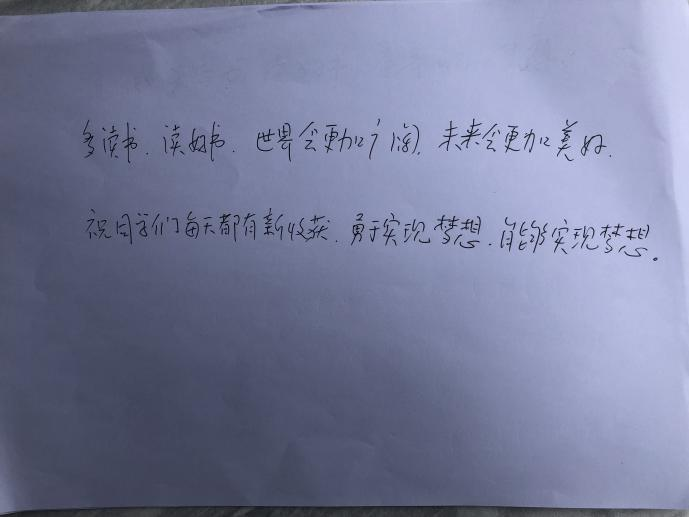 多读书、读好书、世界会更加广阔，未来会更加美好，
祝同学们每天都有新收获、勇于实现梦想、能够实现梦想。